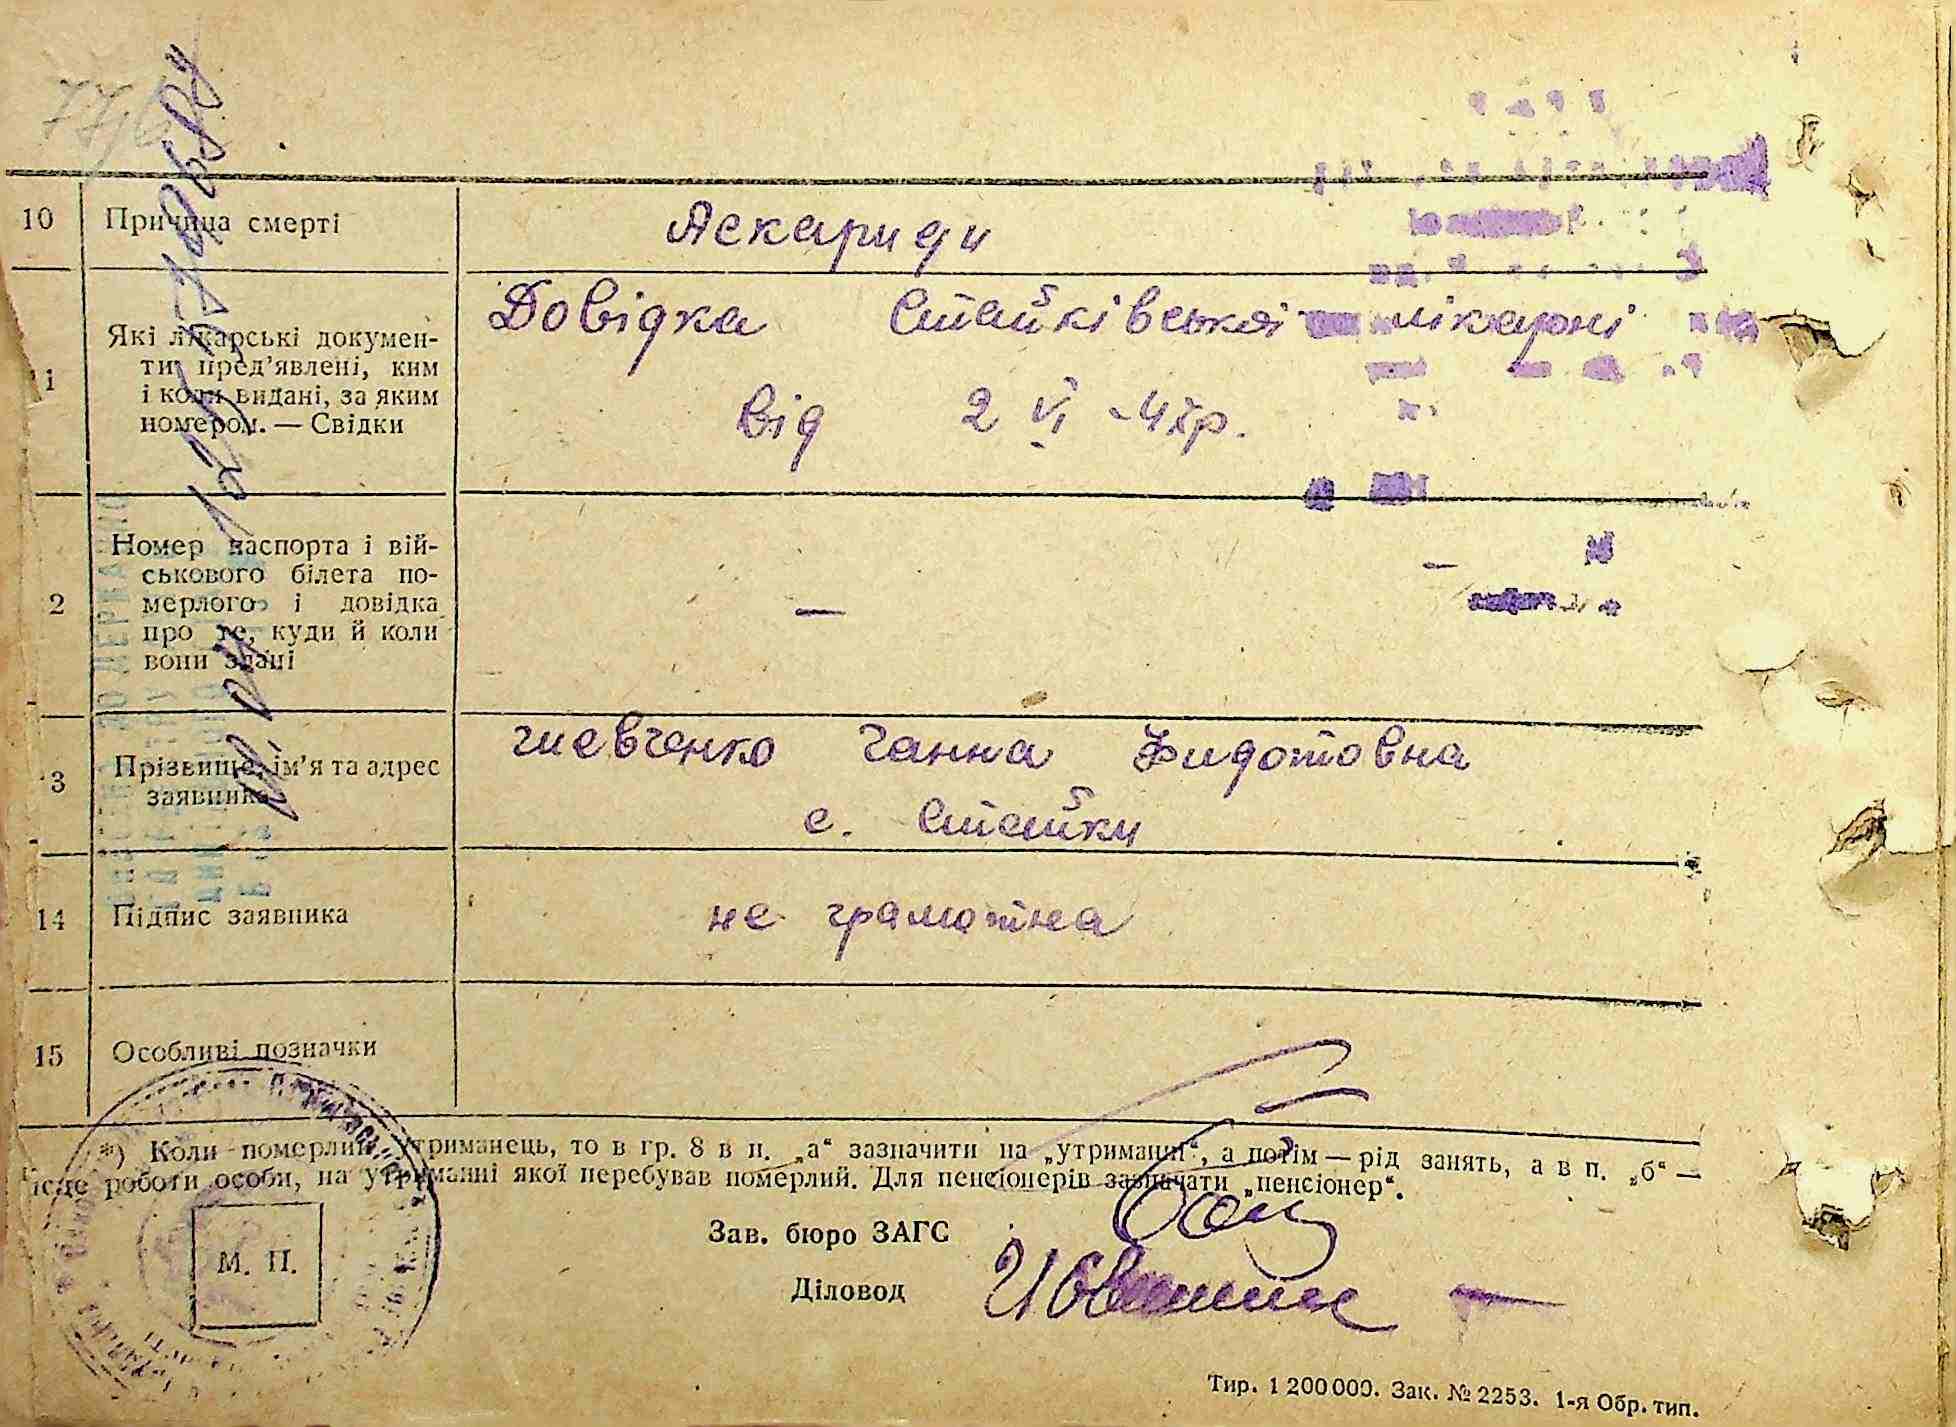 10 Причина смерті Аскариди
Які лікарські докумен-
ти пред’явлені, ким
і коли видані, за яким
номером. — Свідки
1 Довідка Стайківської лікарні
від 2 VI - 47р.
2 Номер паспорта і вій-
ськового білета по-
мерлого і довідка
про те, куди й коли
вони здані
—
3 Прізвище, ім’я та адрес
заявника
Шевченко Ганна Федотовна
с. Стайки
14 Підпис заявника не грамотна
15 Особливі позначки
*) Коли померлий утриманець, то в гр. 8 в п. „а“ зазначити на „утриманні“, а потім — рід занять, а в п. „б“ —
місце роботи особи, на утриманні якої перебував померлий. Для пенсіонерів зазначати „пенсіонер“.
Зав. бюро ЗАГС
М. П.
Діловод
Тир. 1 200 000. Зак. № 2253. 1-я Обр. тип.